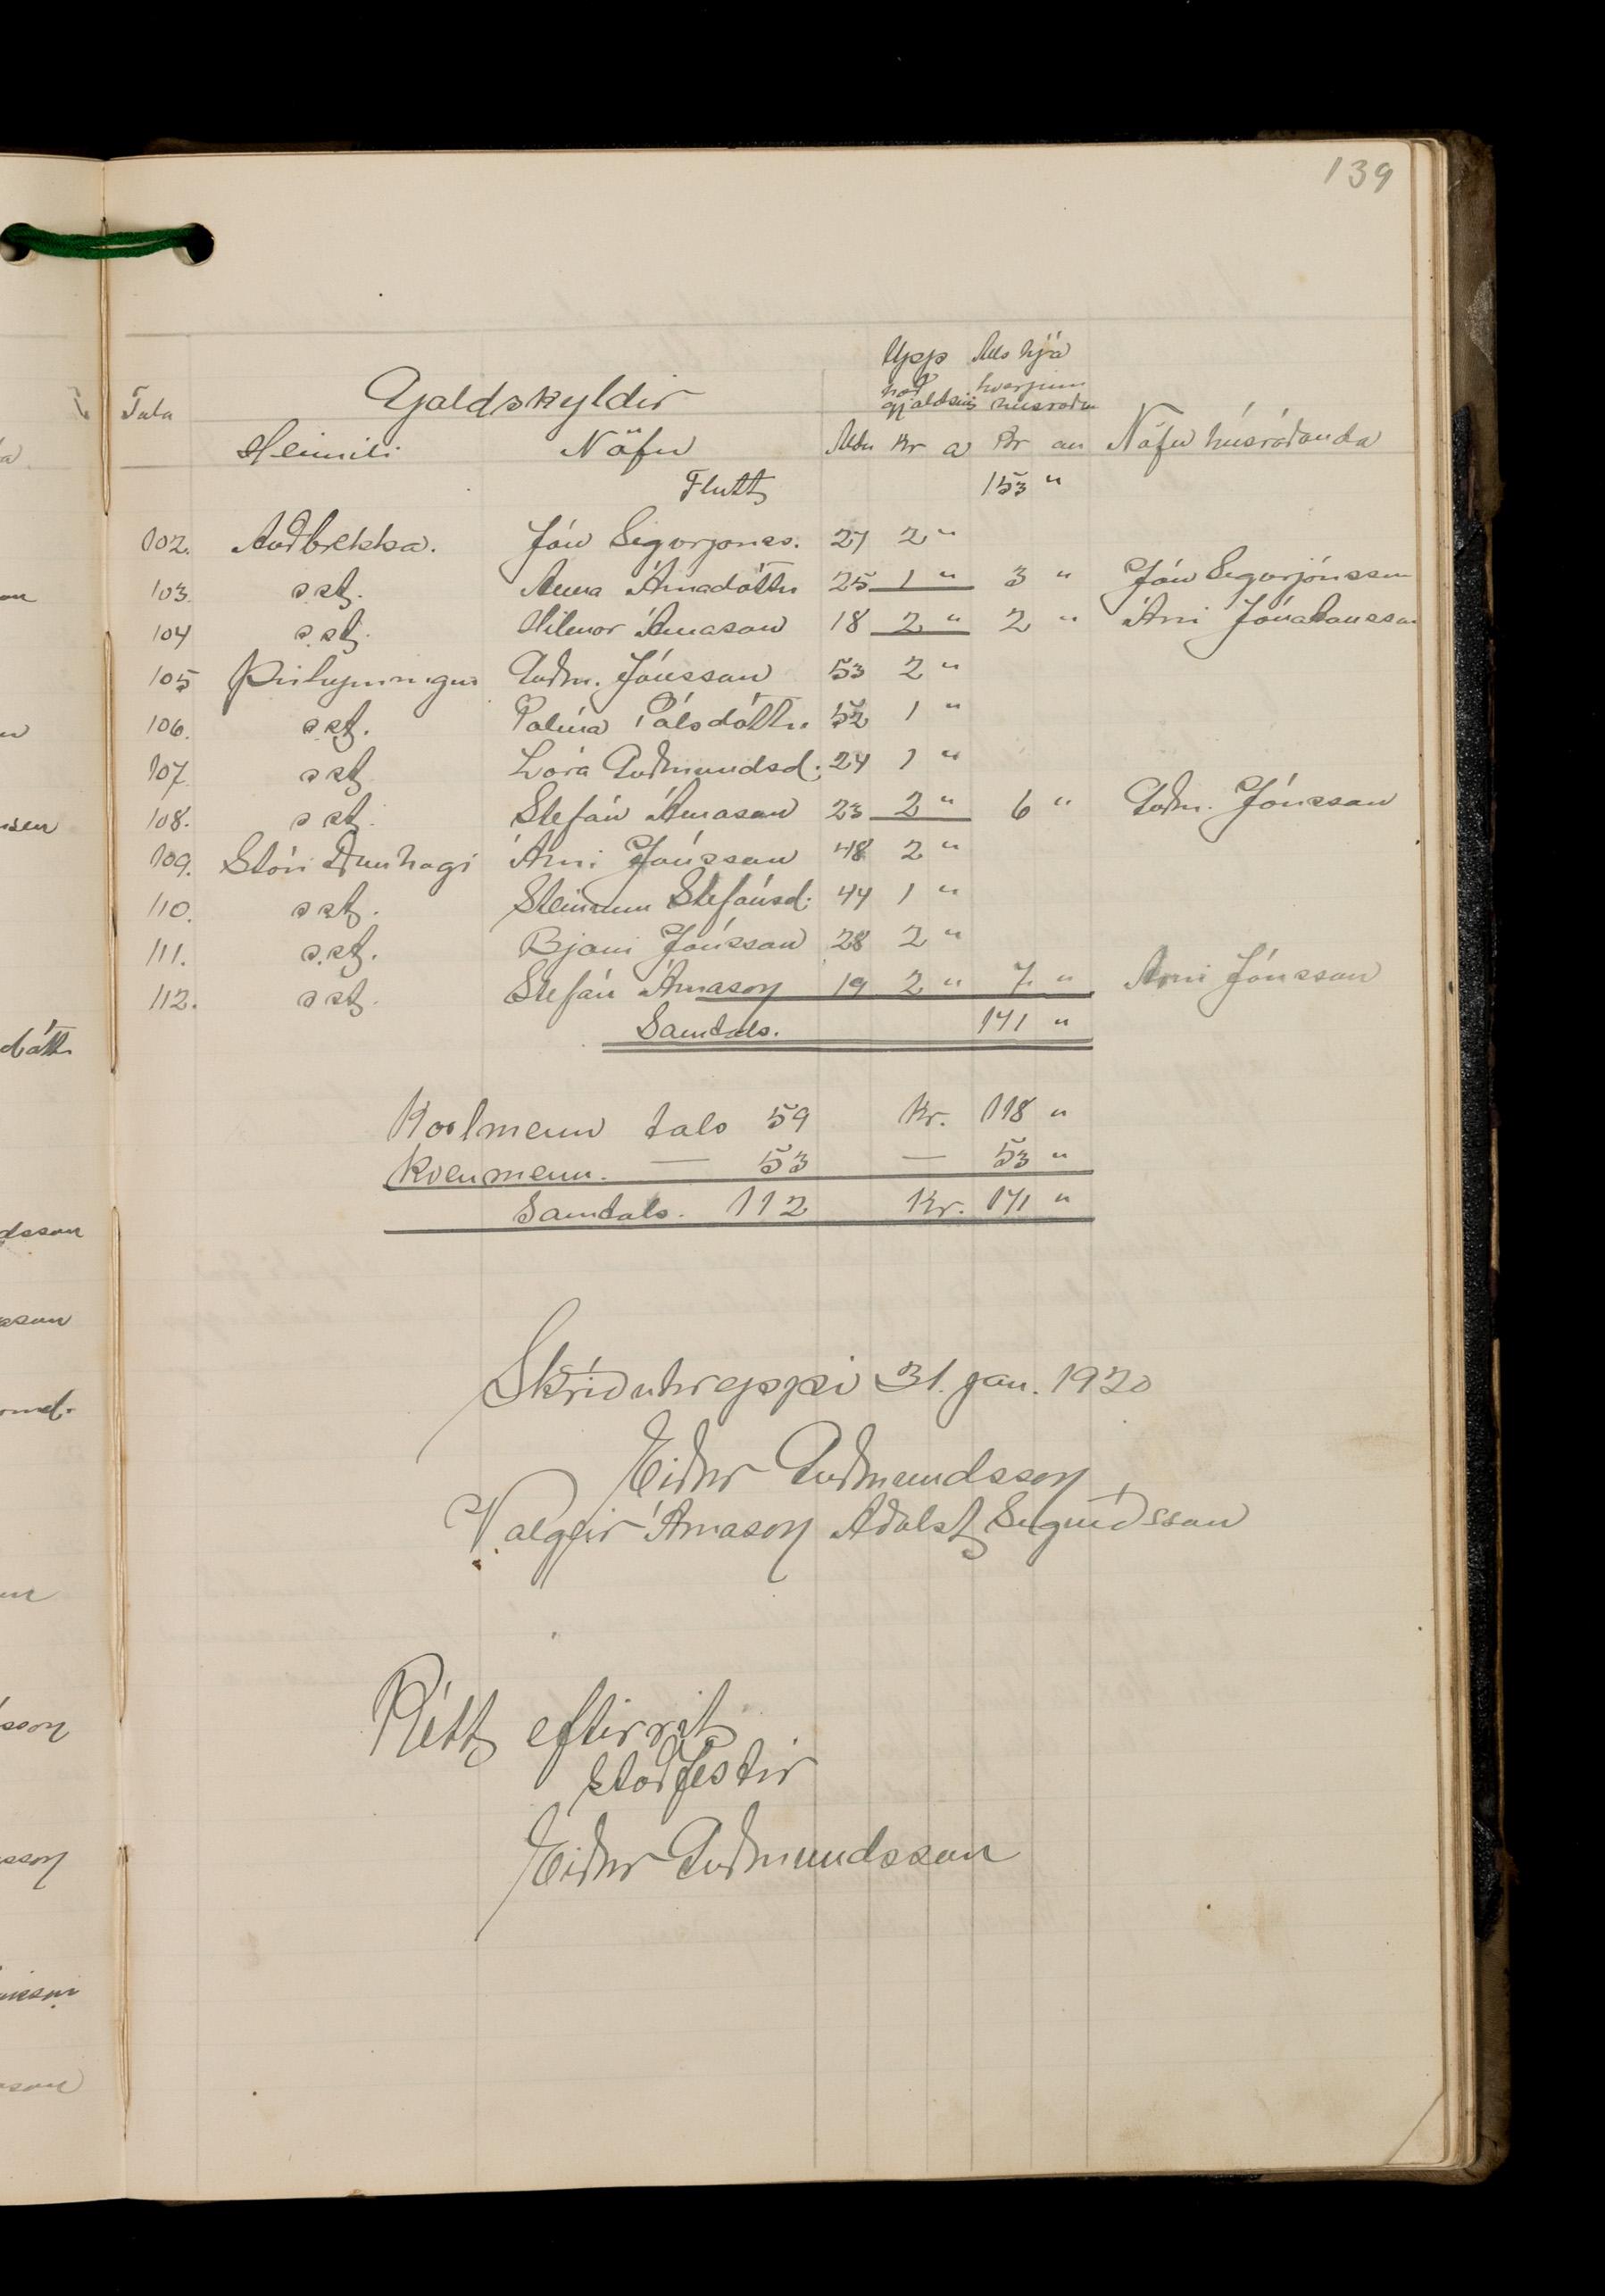 139
Upp Alls hjá
Tala Gjaldskyldir hæð hverjum
gjaldsins húsráðn
Heimili Nöfn Aldn Kr a Kr au Nöfn húsráðanda
Flutt 153 "
102. Auðbrekka. Jón Sigurjónss. 27 2 "
103. s.st. Anna Árnadóttir 25 1 " 3 " Jón Sigurjónsson
104 s.st. Hilmar Árnason 18 2 " 2 " Árni Jónatansson
105 Þríhyrningur Guðm. Jónsson 53 2 "
106. s.st. Palína Pálsdóttir 52 1 "
107 s st Lára Guðmundsd. 24 1 "
108. s st. Stefán Árnason 23 2 " 6 " Guðm. Jónsson
109. Stóri Dunhagi Árni Jónsson 48 2 "
110. s st. Steinunn Stefánsd. 44 1 "
111. s.st. Bjarni Jónsson 28 2 "
112. s st. Stefán Árnason 19 2 " 7 " Árni Jónsson
Samtals. 171 "
Karlmenn tals 59 Kr. 118 "
Kvenmenn. — 53 — 53 "
Samtals. 112 Kr. 171 "
Skriðuhreppi 31. jan. 1920
Eiður Guðmundsson
Valgeir Árnason Aðalst Sigurðsson
Rétt eftirrit
staðfestir
Eiður Guðmundsson